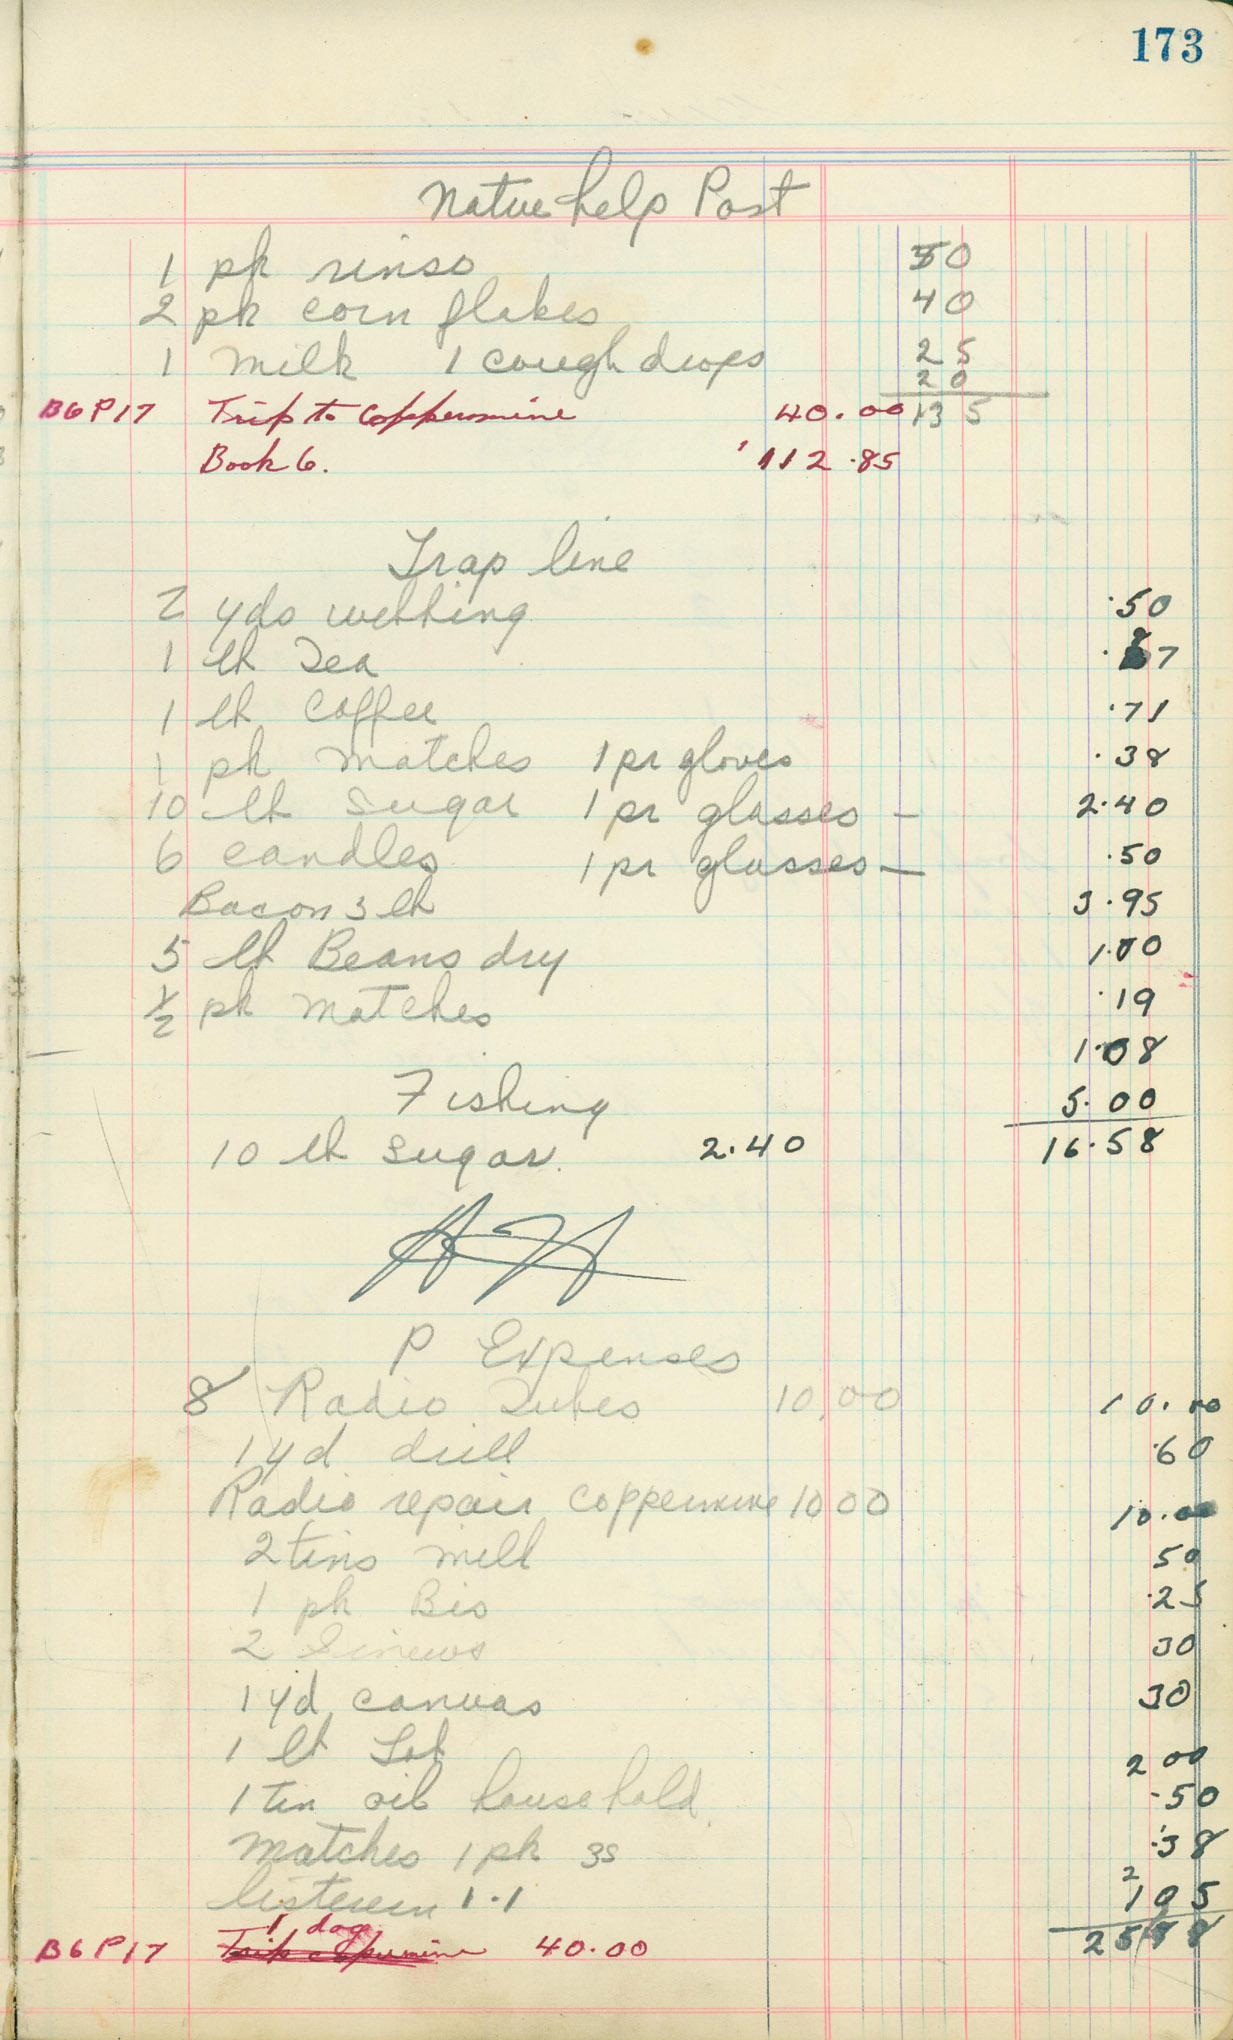 173
Native help Post
1 pk rinso 50
2 pk corn flakes 40
1 milk 1 cough drops 25
20
B6 P17 Trip to Coppermine 40.00 135
Book 6. 112.85
Trap line
2 yds webbing .50
1 lb Tea .87
1 lb Coffee .71
1 pk matches 1 pr gloves .38
10 lb sugar 1 pr glasses — 2.40
6 candles 1 pr glasses — .50
Bacon 3 lb 3.95
5 lb Beans dry 1.00
½ pk matches .19
1.08
Fishing 5.00
10 lb sugar. 2.40 16.58
P Expenses
8 Radio Tubes 10.00 10.00
1 yd drill .60
Radio repair coppermine 10 00 10.00
2 tins milk 50
1 pk Bis .25
2 Sinews 30
1 yd canvas 30
1 lb 2 00
1 tin oil household .50
matches 1 pk 38 .38
1.1 105
2588
1 dog
B6 P17 Trip Coppermine 40.00